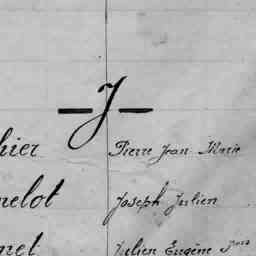 — J —
hier Pierre Jean Marie
nelot Joseph Julien
net Julien Eugène